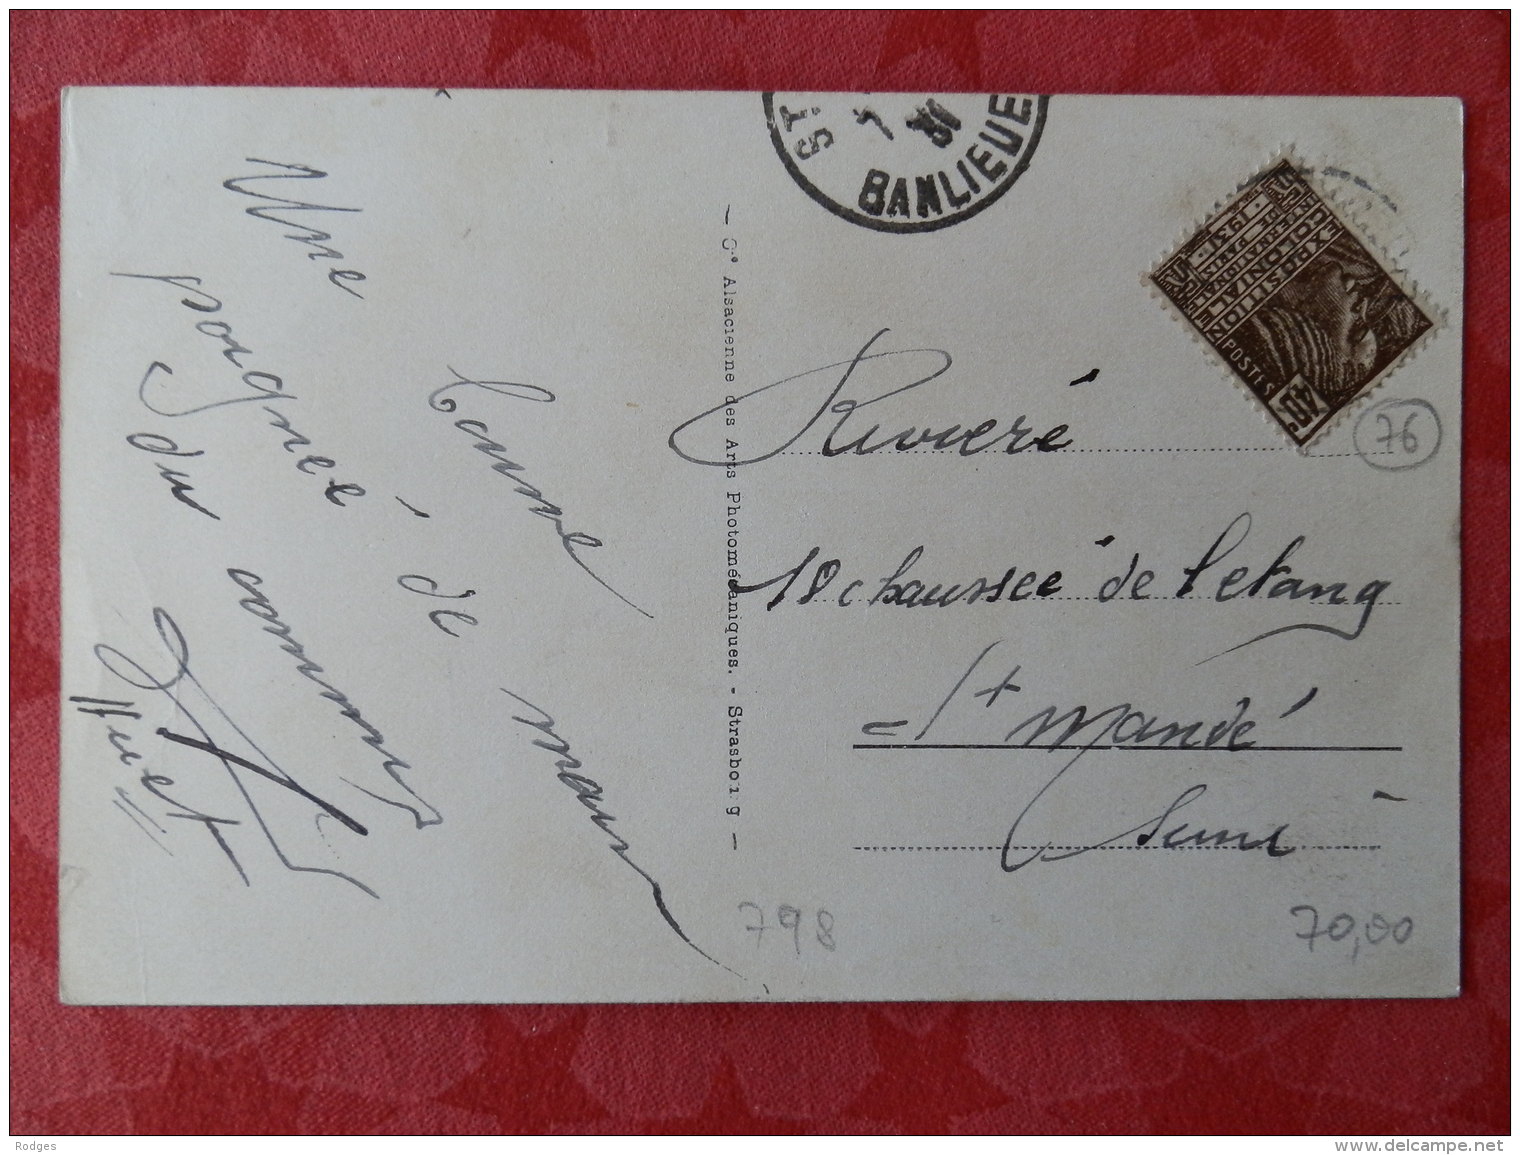 Une
poignée de main
du commis
Huet
— Cie Alsacienne des Arts Photomécaniques. - Strasbourg —
BANLIEUE
31
EXPOSITION
COLONIALE
INTERNATIONALE
DE PARIS
1931
POSTES
40c
76
Rivieré
18 chaussée de l'etang
St Mandé
Seine
798
70,00
Rodges
www.delcampe.net